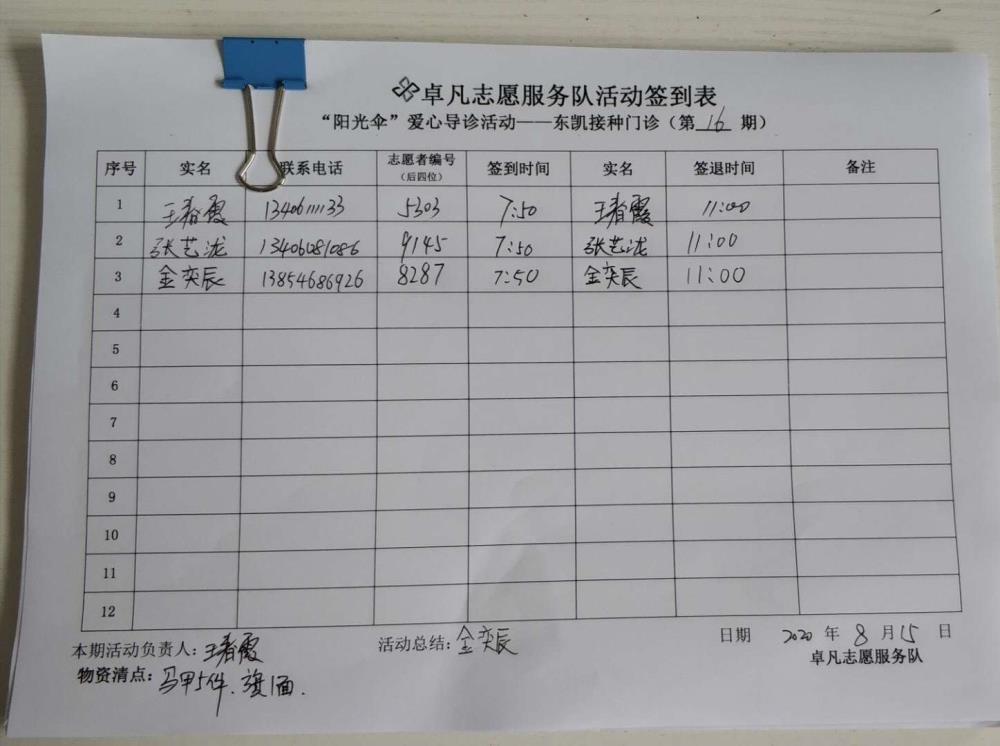 卓凡志愿服务队活动签到表
“阳光伞”爱心导诊活动——东凯接种门诊（第 16 期）
序号 实名 联系电话 志愿者编号（后四位） 签到时间 实名 签退时间 备注
1 王春霞 13406111133 5303 7:50 王春霞 11:00
2 张艺泷 13406081086 9145 7:50 张艺泷 11:00
3 金奕辰 13854686926 8287 7:50 金奕辰 11:00
4
5
6
7
8
9
10
11
12
本期活动负责人：王春霞 活动总结：金奕辰 日期 2020 年 8 月 15 日
物资清点：马甲5件、旗1面. 卓凡志愿服务队